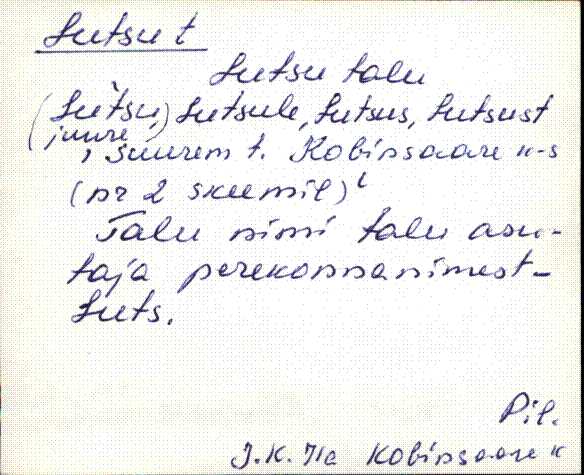 Lutsu t
Lutsu talu
(Lutsu, juure) Lutsule, Lutsus, Lutsust
, suurem t. Kobinsaare k-s
(nr 2 skeemil)
Talu nimi talu asu-
taja perekonnanimest-
Luts.
Pil.
J.K. 71a Kobinsaare k